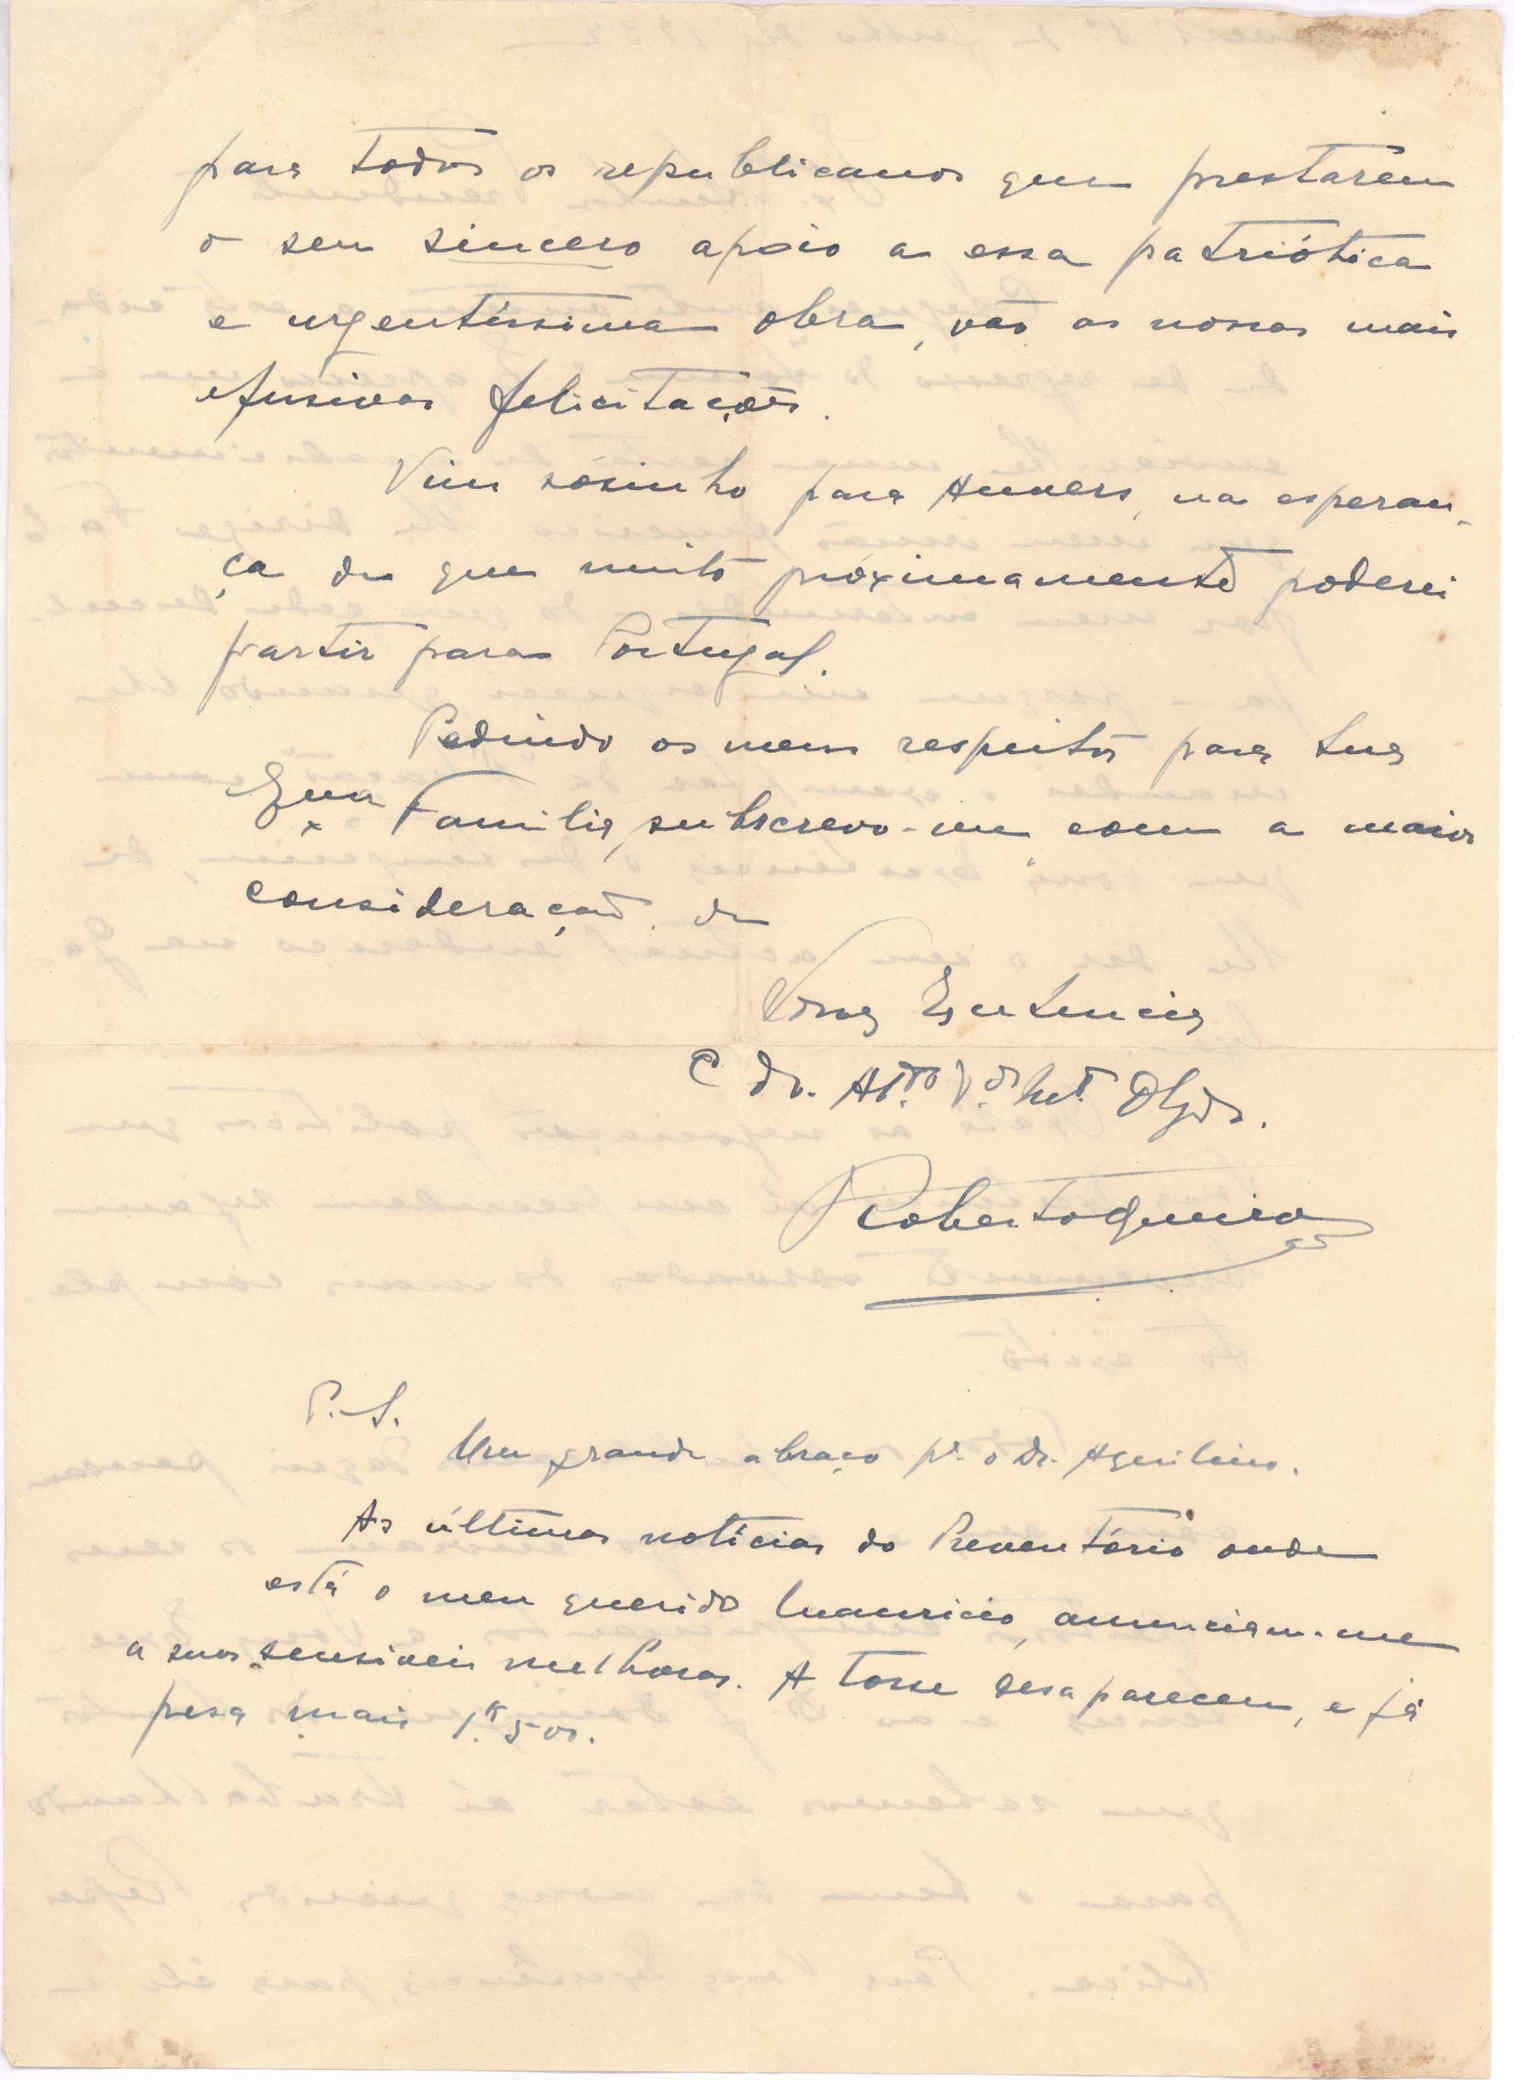 para todos os republicanos que prestarem
o seu sincero apoio a essa patriótica
e urgentíssima obra, vão as nossas mais
efusivas felicitações.
Vim sòsinho para Anvers, na esperan-
ça de que muito pròximamente poderei
partir para Portugal.
Pedindo os meus respeitos para sua
Exma Familia, subscrevo-me com a maior
consideração de
Vossa Excelencia
C do. At.to V.dor Mt.º Obgdo.
Roberto Queiroz
P.S.
Um grande abraço pª o Dr. Aquilino.
As últimas notícias do Preventório onde
está o meu querido Mauricio, anunciam-me
a suas sensiveis melhoras. A tosse desapareceu, e já
pesa mais 1.K 500.